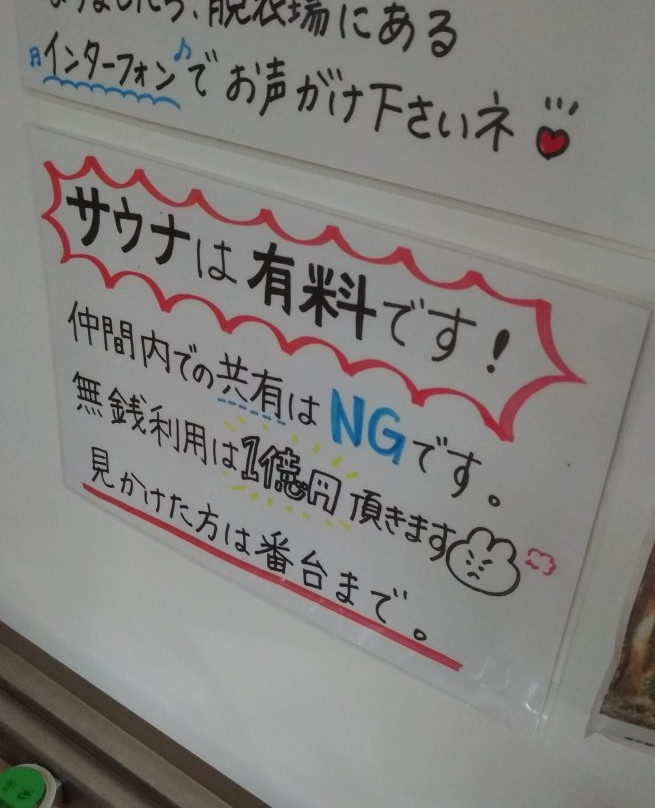 脱衣場にある
インターフォン♪でお声がけ下さいネ
サウナは有料です!
仲間内での共有はNGです。
無銭利用は1億円頂きます
見かけた方は番台まで。